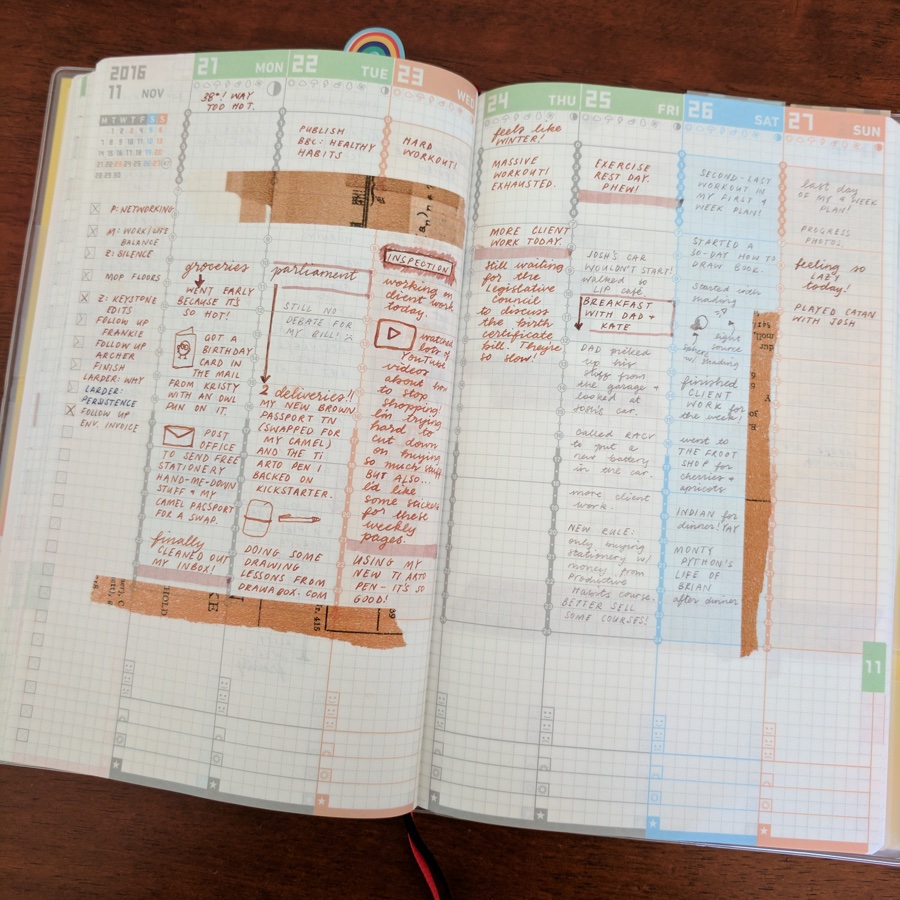 2016
11 NOV
M T W T F S S
1 2 3 4 5 6
7 8 9 10 11 12 13
14 15 16 17 18 19 20
21 22 23 24 25 26 27
28 29 30
P: NETWORKING
M: WORK/LIFE
BALANCE
Z: SILENCE
MOP FLOORS
Z: KEYSTONE
EDITS
FOLLOW UP
FRANKIE
FOLLOW UP
ARCHER
FINISH
LARDER: WHY
LARDER:
PERSISTENCE
FOLLOW UP
ENV. INVOICE
21 MON
38°! WAY
TOO HOT.
groceries
WENT EARLY
BECAUSE IT'S
SO HOT!
GOT A
BIRTHDAY
CARD IN
THE MAIL
FROM KRISTY
WITH AN OWL
PUN ON IT.
POST
OFFICE
TO SEND FREE
STATIONERY
HAND-ME-DOWN
STUFF + MY
CAMEL PASSPORT
FOR A SWAP.
finally
CLEANED OUT
MY INBOX!
22 TUE
PUBLISH
BBC: HEALTHY
HABITS
parliament
STILL NO
DEBATE FOR
MY BILL! :(
2 deliveries!!
MY NEW BROWN
PASSPORT TN
(SWAPPED FOR
MY CAMEL)
AND THE TI
ARTO PEN I
BACKED ON
KICKSTARTER.
DOING SOME
DRAWING
LESSONS FROM
DRAWABOX.COM
23 WED
HARD
WORKOUT!
INSPECTION
working on
client work
today.
watched
lots of
YouTube
videos
about how
to stop
shopping!
I'm trying
hard to
cut down
on buying
so much stuff
BUT ALSO...
I'd like
some stickers
for these
weekly
pages.
USING MY
NEW TI ARTO
PEN - IT'S SO
GOOD!
24 THU
feels like
WINTER!
MASSIVE
WORKOUT!
EXHAUSTED.
MORE CLIENT
WORK TODAY.
Still waiting
for the
Legislative
Council
to discuss
the birth
certificate
bill. They're
so slow!
25 FRI
EXERCISE
REST DAY.
PHEW!
JOSH'S CAR
WOULDN'T START!
Walked to
LIP café
BREAKFAST
WITH DAD +
KATE
DAD picked
up his
stuff from
the garage +
looked at
Josh's car.
Called RACV
to put a
new battery
in the car.
more client
work.
NEW RULE:
only buying
stationery w/
money from
Productive
Habits course.
BETTER SELL
SOME COURSES!
26 SAT
SECOND-LAST
WORKOUT IN
MY FIRST 4
WEEK PLAN!
STARTED A
30-DAY HOW TO
DRAW BOOK.
Started w/
shading
light
source
w/ shading
finished
CLIENT
WORK for
the week!
went to
THE FROOT
SHOP for
cherries +
apricots
INDIAN for
dinner! YAY
MONTY
PYTHON'S
LIFE OF
BRIAN
after dinner
27 SUN
last day
OF MY 4 WEEK
PLAN!
PROGRESS
PHOTOS.
feeling so
LAZY
today!
PLAYED CATAN
WITH JOSH
11